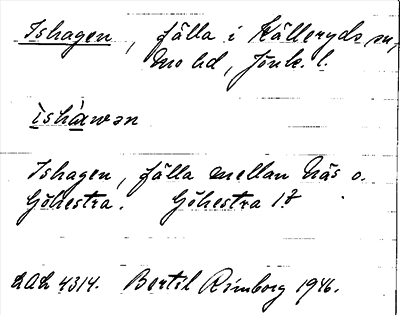 Ishagen, fälla i Källeryds sn,
Mo hd, Jönk. l.
ìshàwən
Ishagen, fälla mellan Näs o.
Göhestra. Göhestra 1
DAL 4314. Bertil Rimborg 1946.